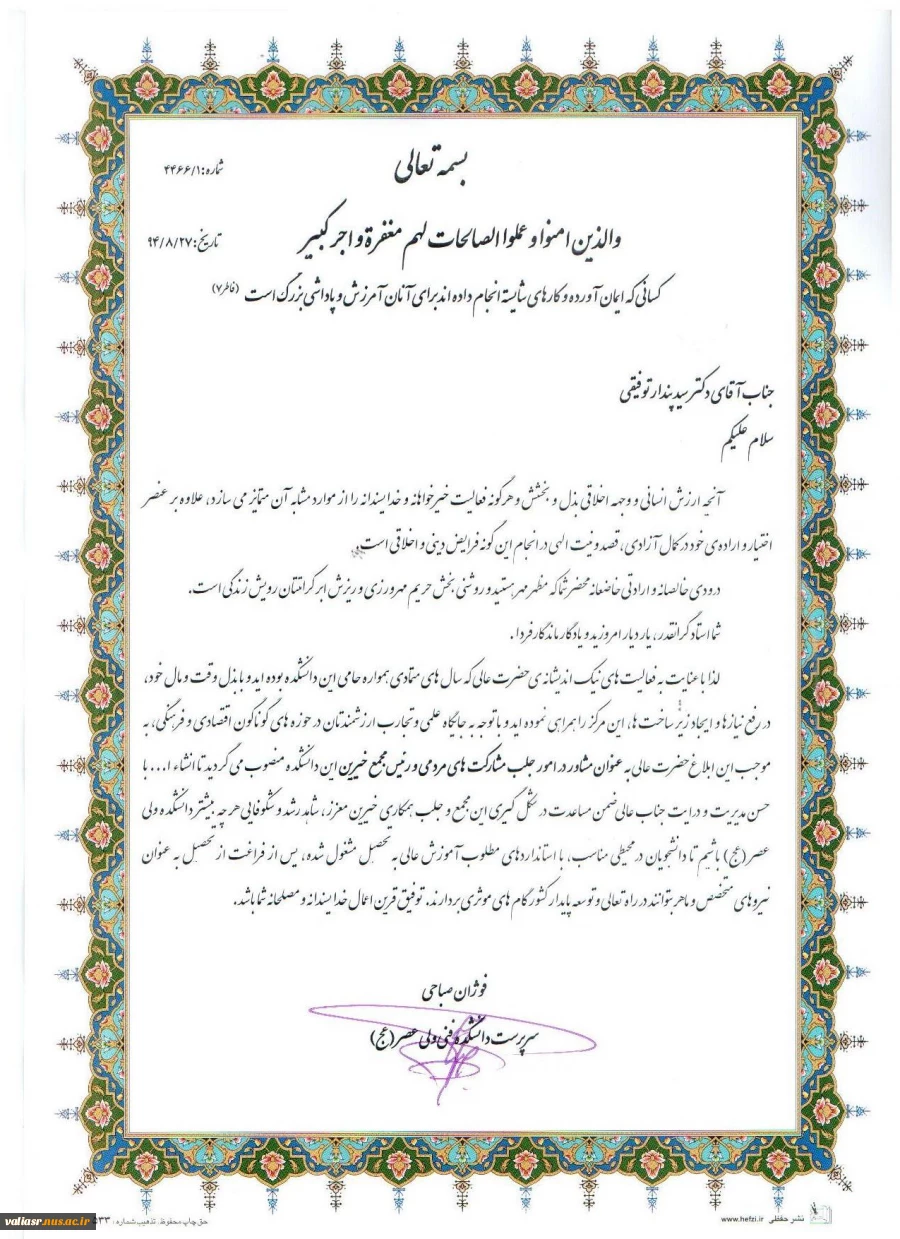 بسمه تعالی
شماره: ۴۴۶۶/۱
والذین امنوا و عملوا الصالحات لهم مغفرة و اجر کبیر
تاریخ: ۹۴/۸/۲۷
کسانی که ایمان آورده و کارهای شایسته انجام داده اند برای آنان آمرزش و پاداشی بزرگ است (فاطر۷)
جناب آقای دکتر سید پندار توفیقی
سلام علیکم
آنچه ارزش انسانی و وجهه اخلاقی بذل و بخشش و هرگونه فعالیت خیرخواهانه و خداپسندانه را از موارد مشابه آن متمایز می سازد، علاوه بر عنصر
اختیار و اراده ی خود در کمال آزادی، قصد و نیت الهی در انجام این گونه فرایض دینی و اخلاقی است.
درودی خالصانه و ارادتی خاضعانه محضر شما که مظهر مهر هستید و روشنی بخش حریم مهرورزی و ریزش ابر کرامتتان رویش زندگی است.
شما استاد گرانقدر، یار دیار امروزید و یادگار ماندگار فردا.
لذا با عنایت به فعالیت های نیک اندیشانه ی حضرت عالی که سال های متمادی همواره حامی این دانشکده بوده اید و با بذل وقت و مال خود،
در رفع نیازها و ایجاد زیر ساخت ها، این مرکز را همراهی نموده اید و با توجه به جایگاه علمی و تجارب ارزشمندتان در حوزه های گوناگون اقتصادی و فرهنگی، به
موجب این ابلاغ حضرت عالی به عنوان مشاور در امور جلب مشارکت های مردمی و رئیس مجمع خیرین این دانشکده منصوب می گردید تا انشاء ا... با
حسن مدیریت و درایت جناب عالی ضمن مساعدت در شکل گیری این مجمع و جلب همکاری خیرین معزز، شاهد رشد و شکوفایی هر چه بیشتر دانشکده ولی
عصر (عج) باشیم تا دانشجویان در محیطی مناسب، با استانداردهای مطلوب آموزش عالی به تحصیل مشغول شده، پس از فراغت از تحصیل به عنوان
نیروهای متخصص و ماهر بتوانند در راه تعالی و توسعه پایدار کشور گام های موثری بردارند. توفیق قرین اعمال خداپسندانه و مصلحانه شما باشد.
فوژان صباحی
سرپرست دانشکده فنی ولی عصر (عج)
valiasr.nus.ac.ir
حق چاپ محفوظ. تذهیب شماره: ۵۳۳
www.hefzi.ir نشر حفظی